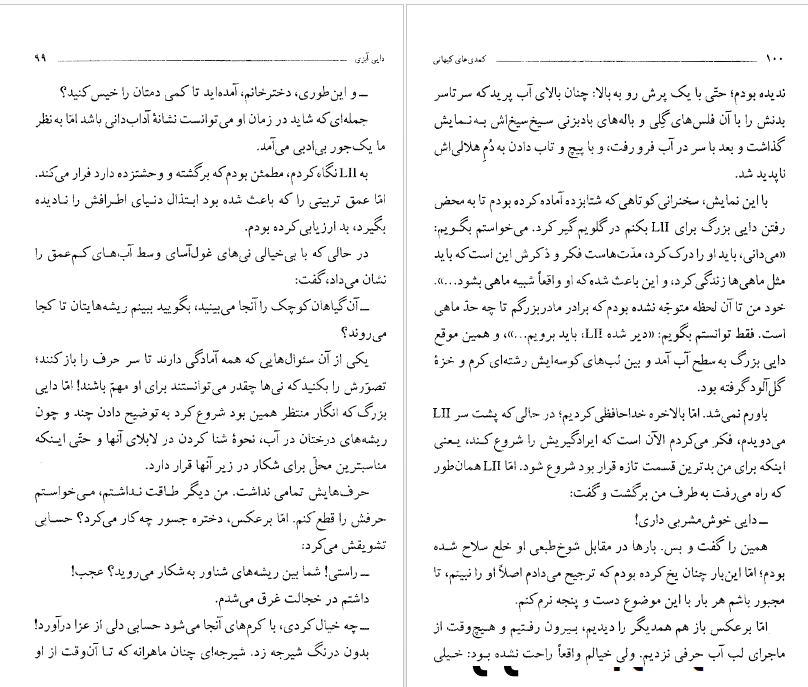 دایی آبزی ۹۹
ــ و این‌طوری، دخترخانم، آمده‌اید تا کمی دمتان را خیس کنید؟
جمله‌ای که شاید در زمان او می‌توانست نشانهٔ آداب‌دانی باشد امّا به نظر
ما یک‌جور بی‌ادبی می‌آمد.
به LII نگاه کردم، مطمئن بودم که برگشته و وحشتزده دارد فرار می‌کند.
امّا عمق تربیتی را که باعث شده بود ابتذال دنیای اطرافش را نادیده
بگیرد، بد ارزیابی کرده بودم.
در حالی که با بی‌خیالی نی‌های غول‌آسای وسط آب‌های کم‌عمق را
نشان می‌داد، گفت:
ــ آن گیاهان کوچک را آنجا می‌بینید، بگویید ببینم ریشه‌هایتان تا کجا
می‌روند؟
یکی از آن سئوال‌هایی که همه آمادگی دارند تا سر حرف را باز کنند؛
تصوّرش را بکنید که نی‌ها چقدر می‌توانستند برای او مهمّ باشند! امّا دایی
بزرگ که انگار منتظر همین بود شروع کرد به توضیح دادن چند و چون
ریشه‌های درختان در آب، نحوهٔ شنا کردن در لابلای آنها و حتّی اینکه
مناسبترین محلّ برای شکار در زیر آنها قرار دارد.
حرف‌هایش تمامی نداشت. من دیگر طاقت نداشتم، می‌خواستم
حرفش را قطع کنم. امّا برعکس، دختره جسور چه کار می‌کرد؟ حسابی
تشویقش می‌کرد:
ــ راستی! شما بین ریشه‌های شناور به شکار می‌روید؟ عجب!
داشتم در خجالت غرق می‌شدم.
ــ چه خیال کردی، با کرم‌های آنجا می‌شود حسابی دلی از عزا درآورد!
بدون درنگ شیرجه زد. شیرجه‌ای چنان ماهرانه که تا آن‌وقت از او
۱۰۰ کمدی‌های کیهانی
ندیده بودم؛ حتّی با یک پرش رو به بالا: چنان بالای آب پرید که سرتاسر
بدنش را با آن فلس‌های گِلی و باله‌های بادبزنی سیخ‌سیخ‌اش به‌نمایش
گذاشت و بعد با سر در آب فرو رفت، و با پیچ و تاب دادن به دُمِ هلالی‌اش
ناپدید شد.
با این نمایش، سخنرانی کوتاهی که شتابزده آماده کرده بودم تا به محض
رفتن دایی بزرگ برای LII بکنم در گلویم گیر کرد. می‌خواستم بگویم:
«می‌دانی، باید او را درک کرد، مدّت‌هاست فکر و ذکرش این است که باید
مثل ماهی‌ها زندگی کرد، و این باعث شده که او واقعاً شبیه ماهی بشود...».
خود من تا آن لحظه متوجّه نشده بودم که برادر مادربزرگم تا چه حدّ ماهی
است. فقط توانستم بگویم: «دیر شده LII، باید برویم...»، و همین موقع
دایی بزرگ به سطح آب آمد و بین لب‌های کوسه‌ایش رشته‌ای کرم و خزهٔ
گل‌آلود گرفته بود.
باورم نمی‌شد. امّا بالاخره خداحافظی کردیم؛ در حالی که پشت سر LII
می‌دویدم، فکر می‌کردم الآن است که ایرادگیریش را شروع کند، یعنی
اینکه برای من بدترین قسمت تازه قرار بود شروع شود. امّا LII همان‌طور
که راه می‌رفت به طرف من برگشت و گفت:
ــ دایی خوش‌مشربی داری!
همین را گفت و بس. بارها در مقابل شوخ‌طبعی او خلع سلاح شده
بودم؛ امّا این‌بار چنان یخ کرده بودم که ترجیح می‌دادم اصلاً او را نبینم، تا
مجبور باشم هر بار با این موضوع دست و پنجه نرم کنم.
امّا برعکس باز هم همدیگر را دیدیم، بیرون رفتیم و هیچ‌وقت از
ماجرای لب آب حرفی نزدیم. ولی خیالم واقعاً راحت نشده بود: خیلی